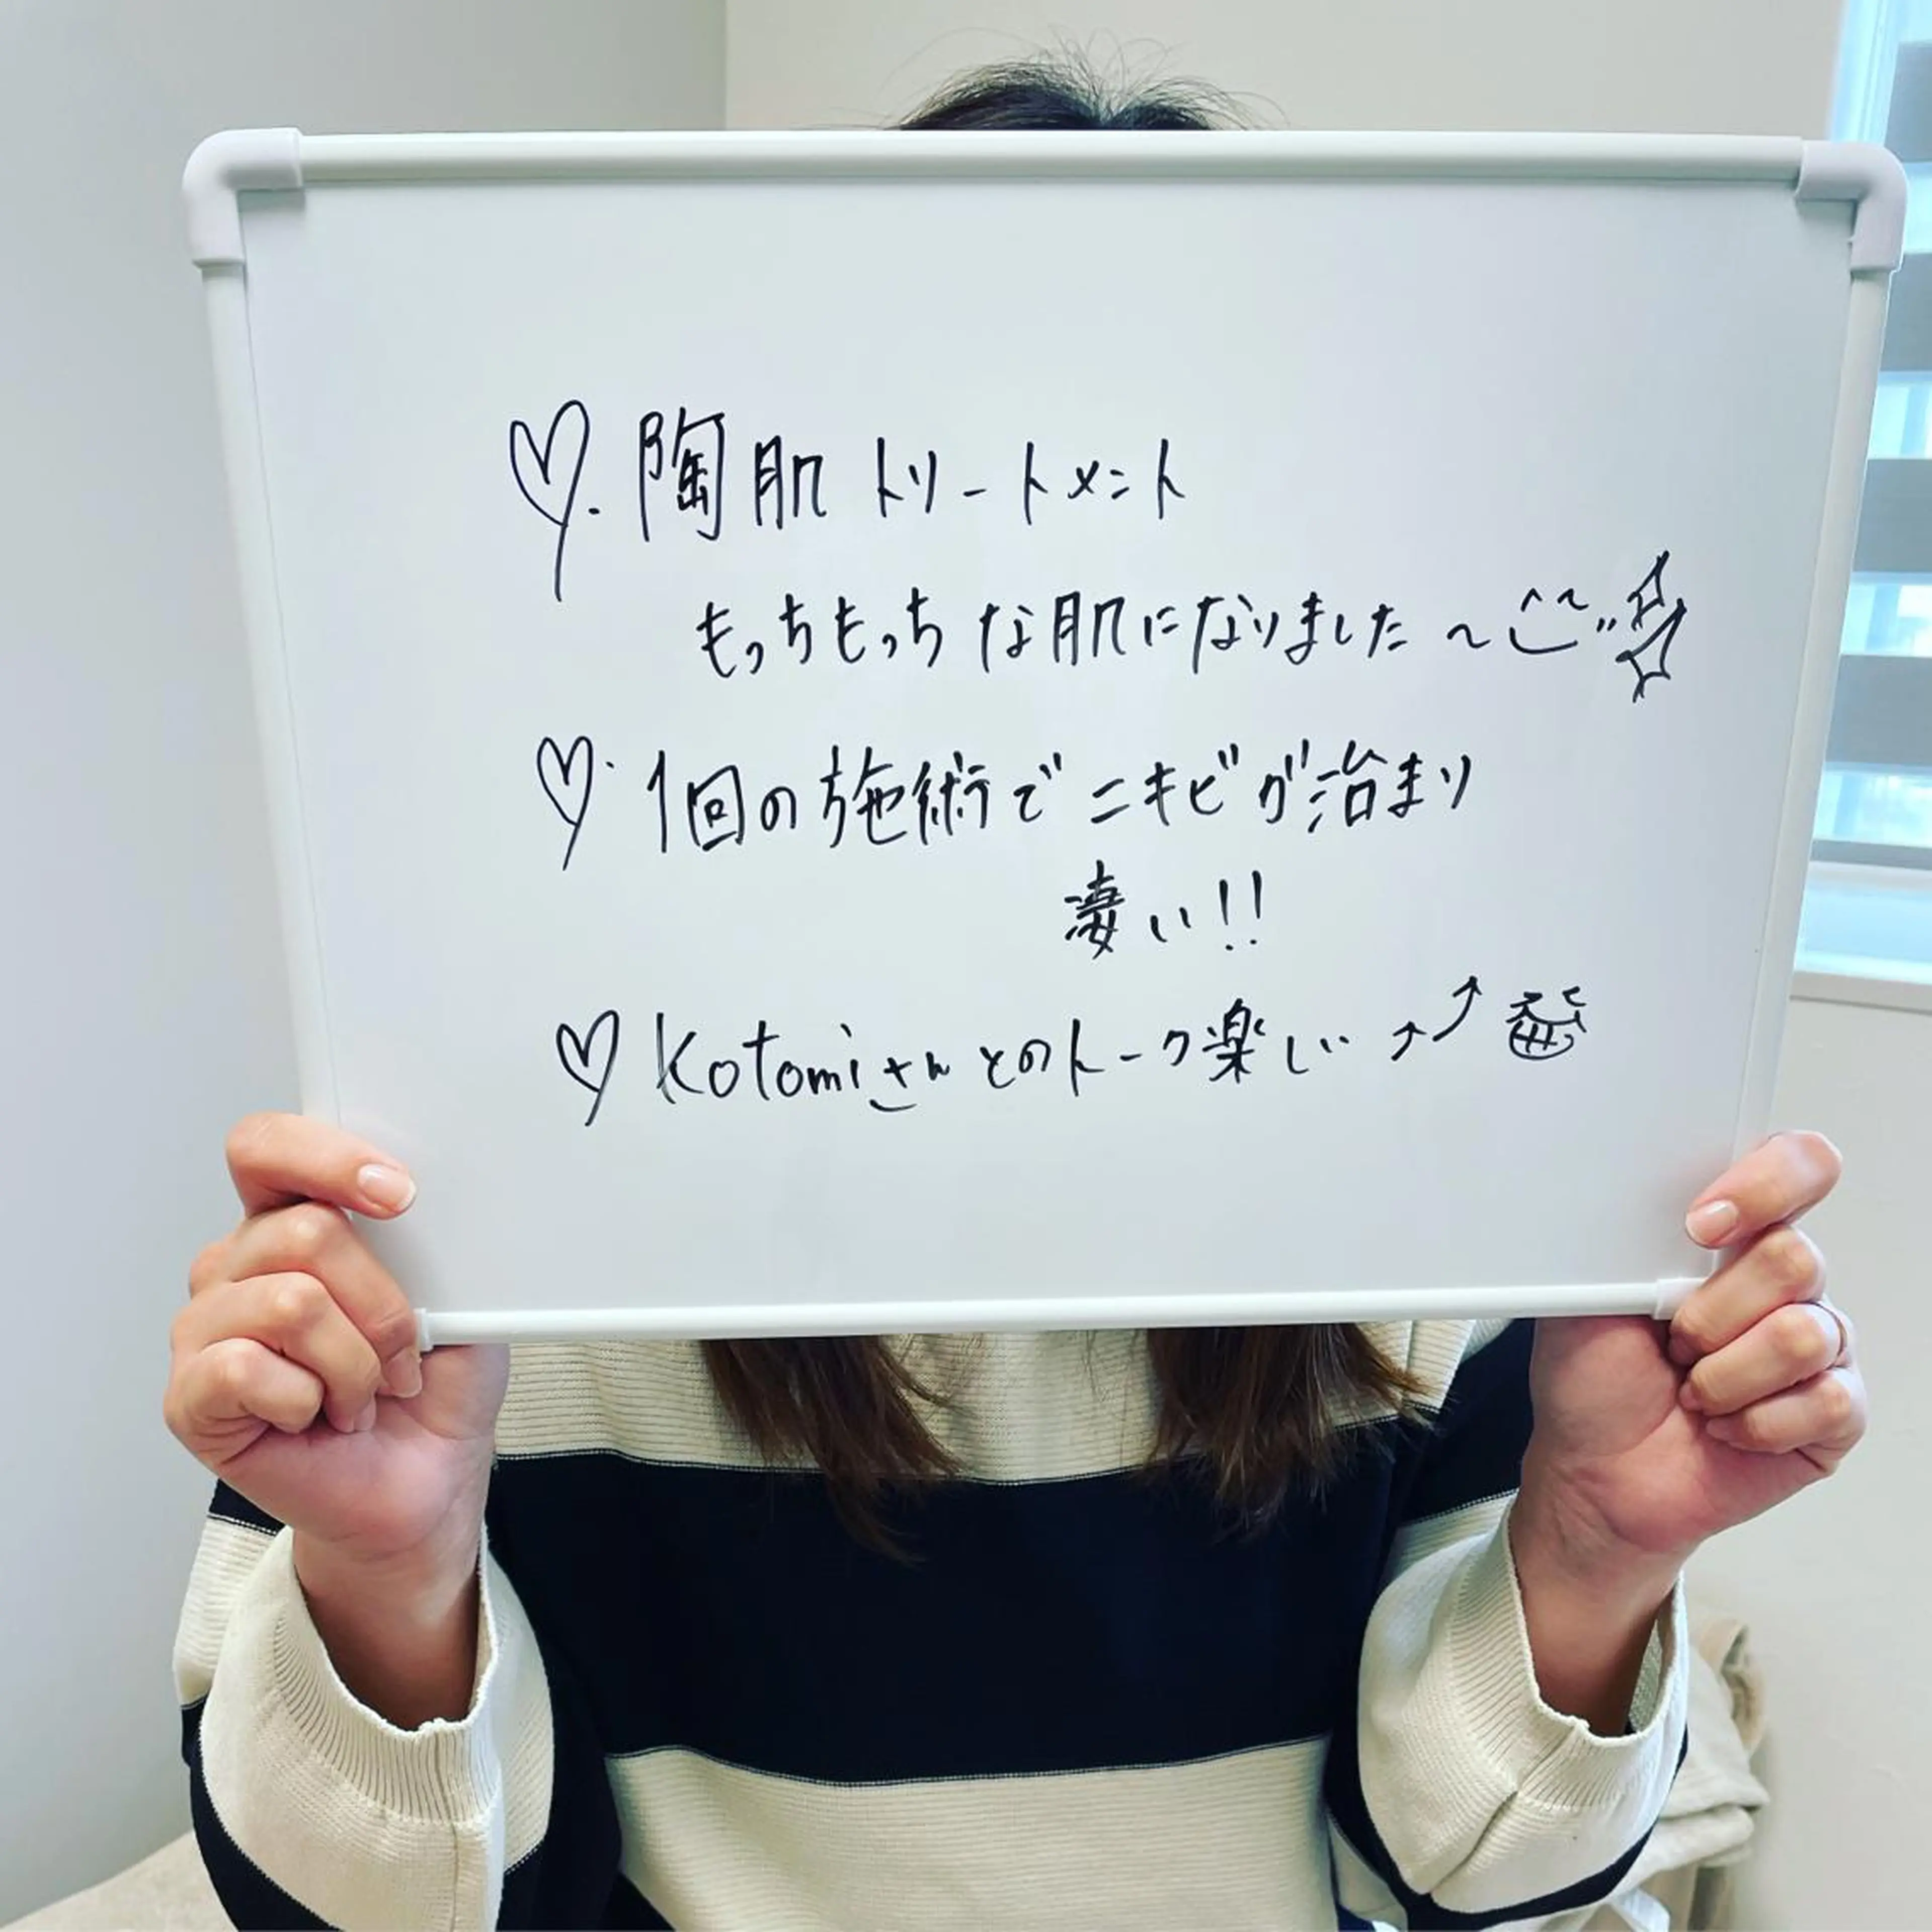 ♡.陶肌トリートメント
もっちもっちな肌になりました~
♡.1回の施術でニキビが治まり
凄い!!
♡Kotomiさんとのトーク楽しい